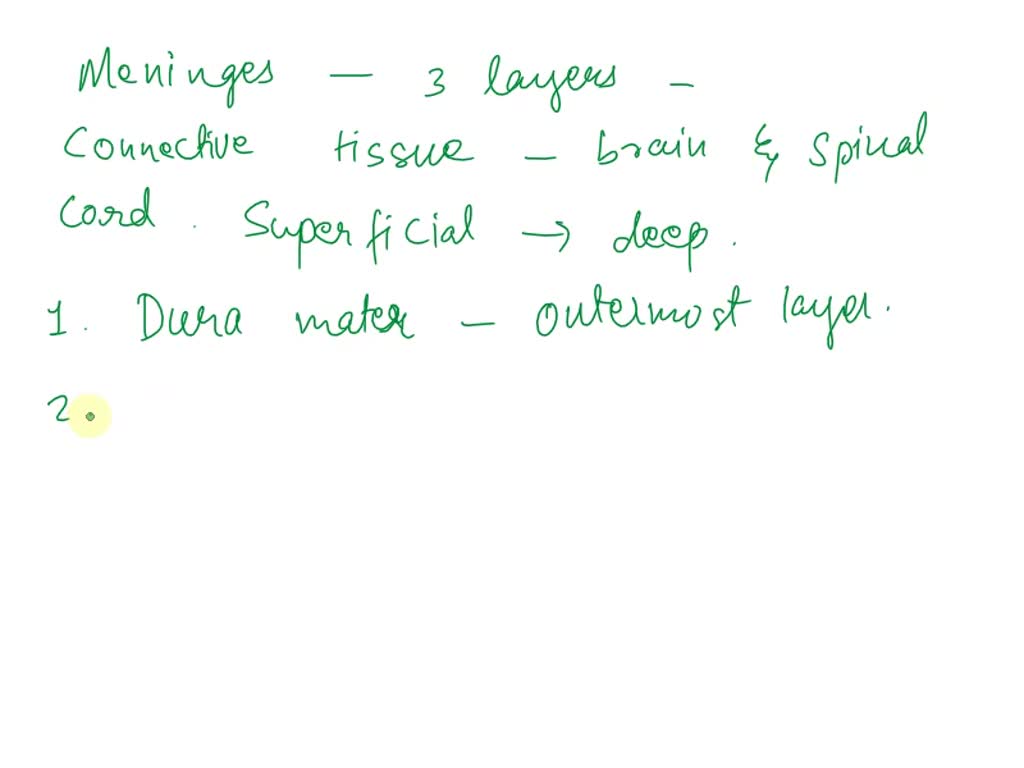 Meninges - 3 layers -
Connective tissue - brain & spinal
cord. Superficial → deep.
1. Dura mater - outermost layer.
2.